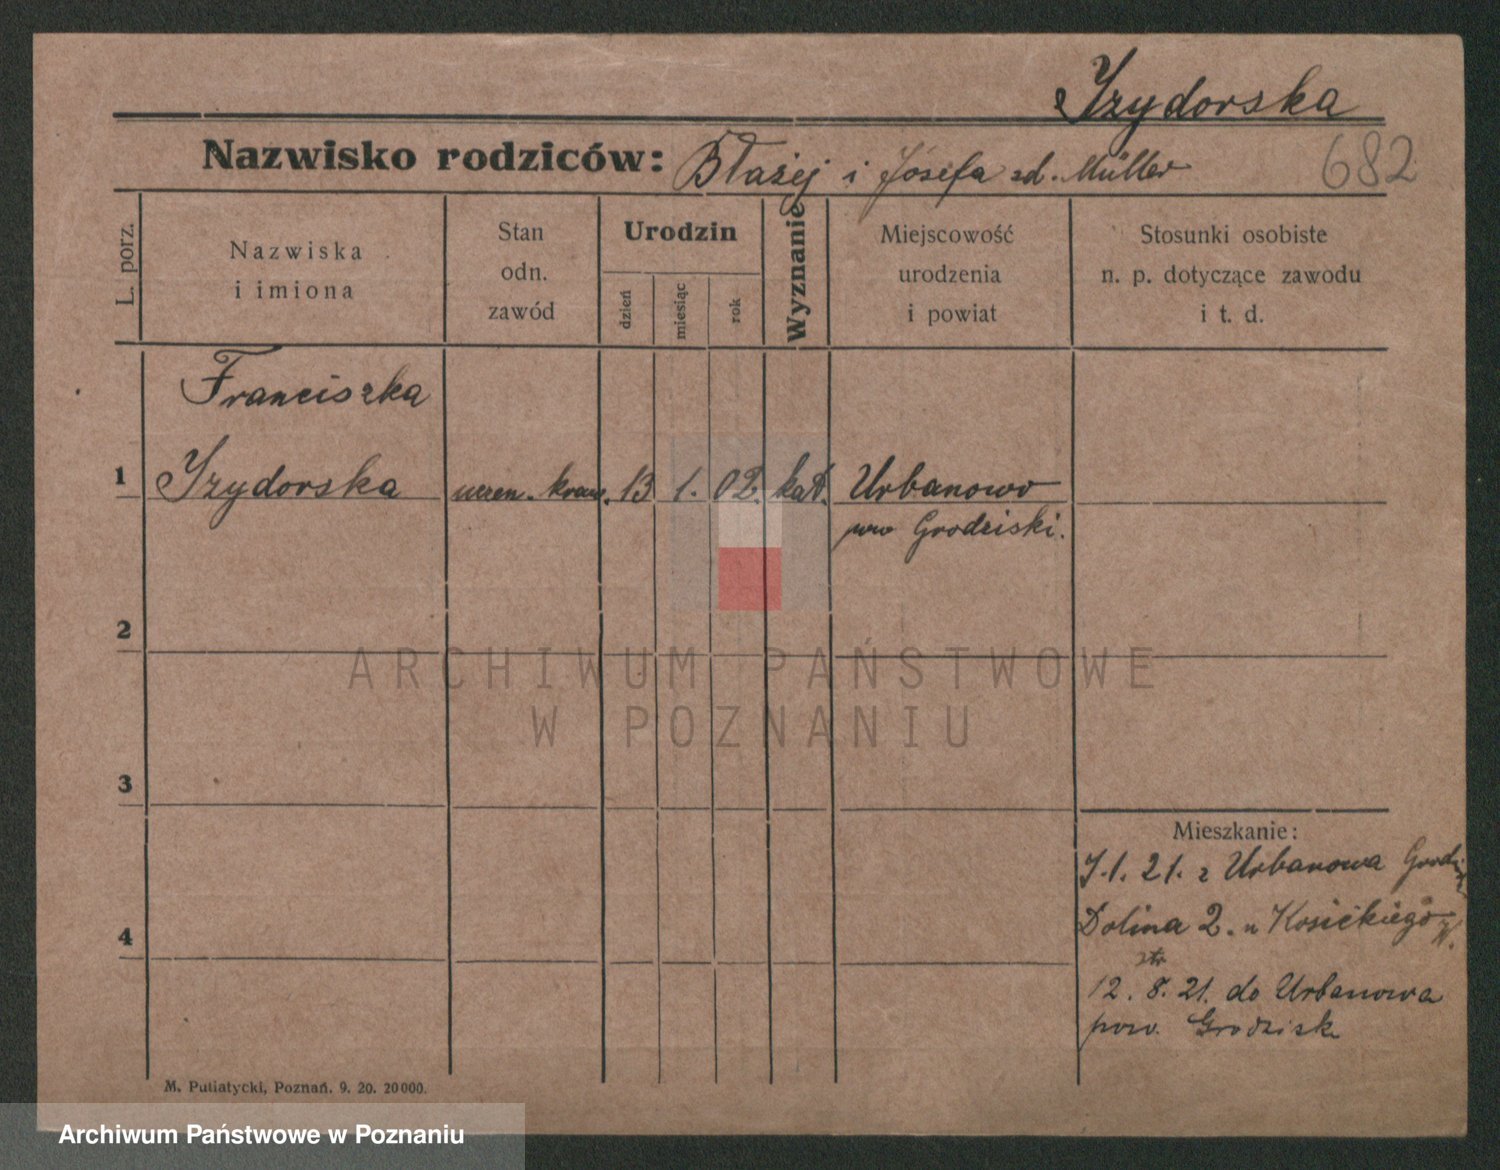 Izydorska
Nazwisko rodziców: Błażej i Józefa zd. Müller
682
L. porz.
Nazwiska
i imiona
Stan
odn.
zawód
Urodzin
dzień
miesiąc
rok
Wyznanie
Miejscowość
urodzenia
i powiat
Stosunki osobiste
n. p. dotyczące zawodu
i t. d.
Franciszka
1 Izydorska uczen. kraw. 13 1. 02. kat. Urbanowo
pow Grodziski.
2
ARCHIWUM PAŃSTWOWE
W POZNANIU
3
Mieszkanie:
1. 21. z Urbanowa
Dolina 2. u Kosickiego
4
12. 8. 21. do Urbanowa
pow. Grodzisk
M. Putiatycki, Poznań. 9. 20. 20000.
Archiwum Państwowe w Poznaniu